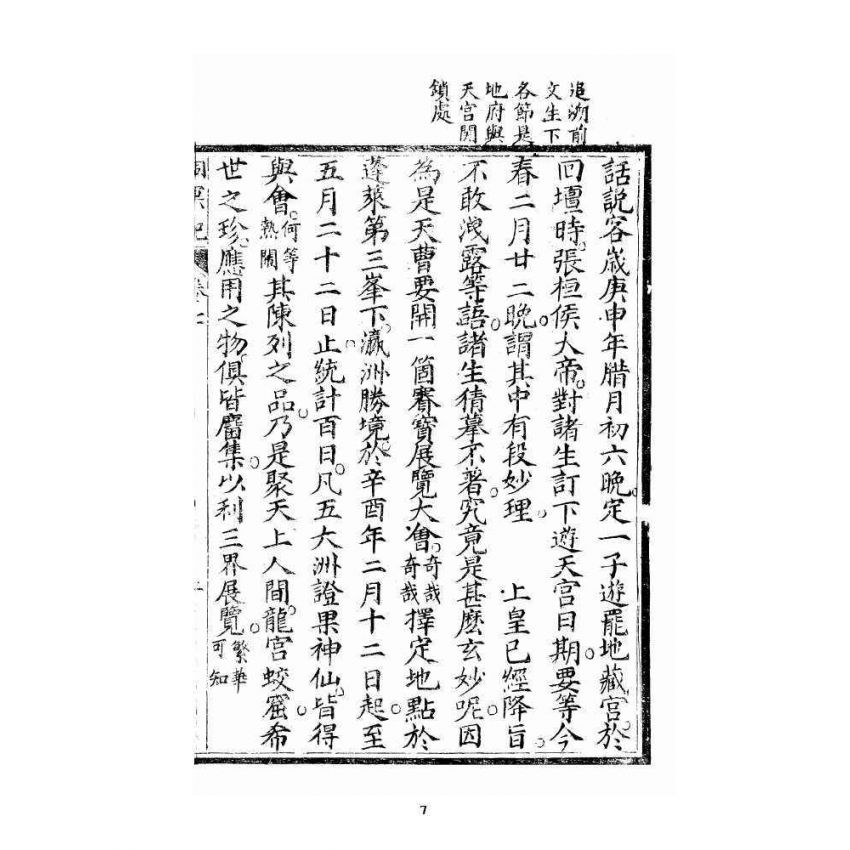 追溯前
文生下
各節是
地府與
天宮関
鎖處
話說客歲庚申年腊月初六晚定一子遊罷地藏宮於
回壇時張桓侯大帝對諸生訂下遊天宮日期要等今
春二月廿二晚謂其中有段妙理 上皇已經降旨
不敢洩露等語諸生猜摹不著究竟是甚麼玄妙呢因
為是天曹要開一箇賽寳展覽大會奇哉奇哉擇定地點於
蓬萊第三峯下瀛洲勝境於辛酉年二月十二日起至
五月二十二日止統計百日凡五大洲證果神仙皆得
與會何等熱閙其陳列之品乃是聚天上人間龍宮蛟窟希
世之珍應用之物俱皆麕集以利三界展覽繁華可知
洞冥記 卷七
7